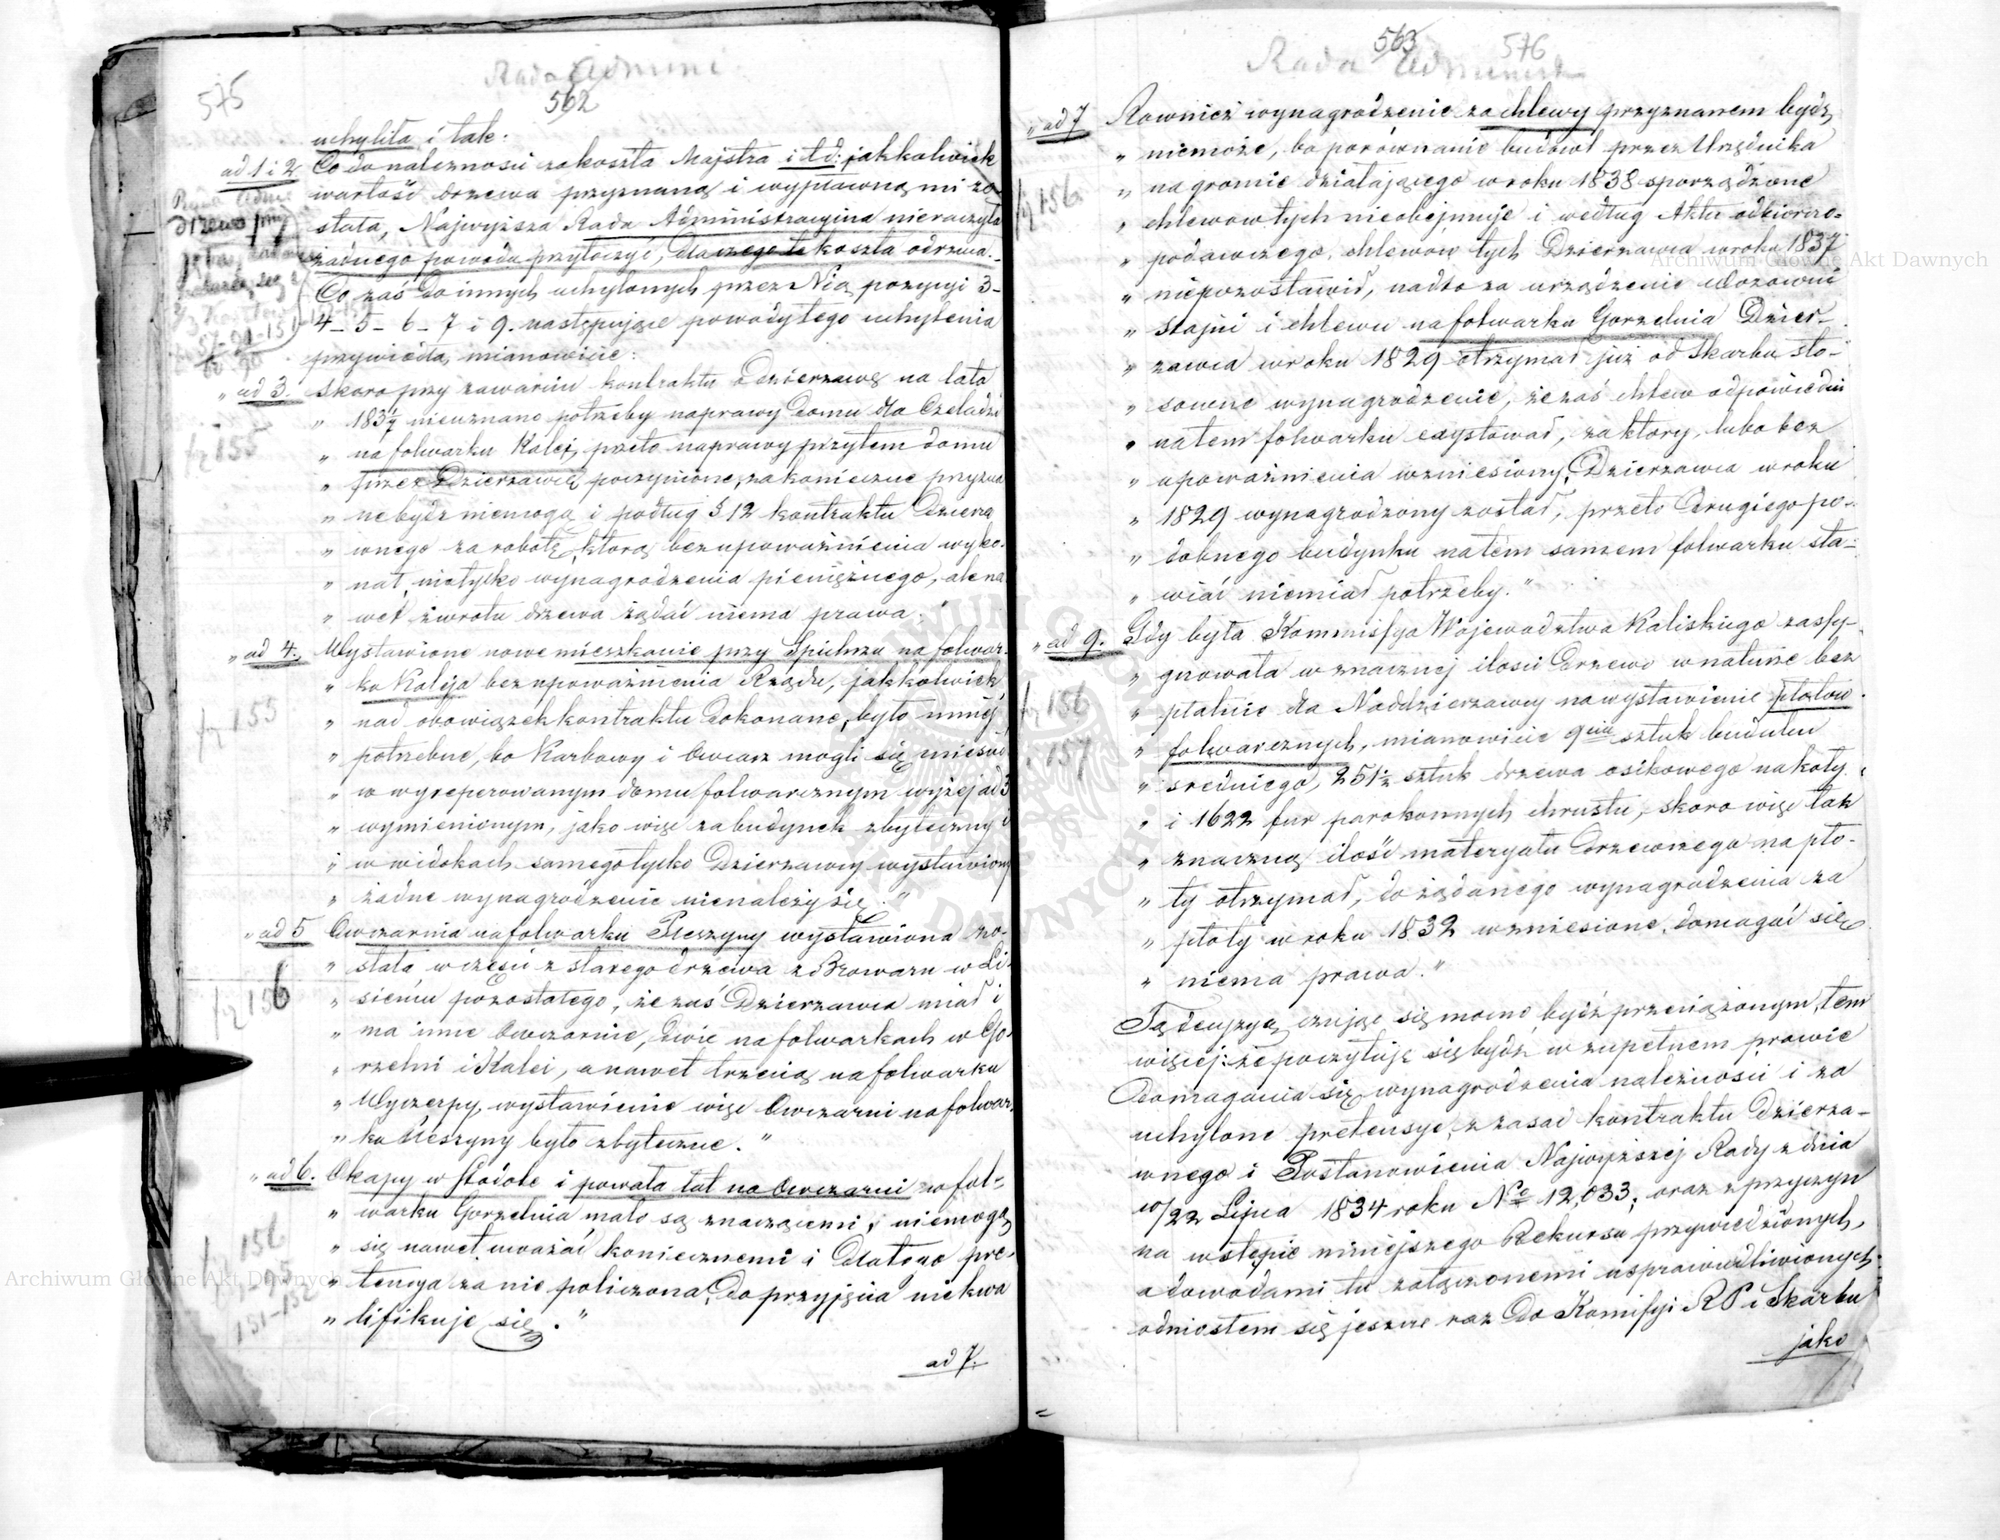 575
Rada Admini
562
uchyliła i tak:
ad 1 i 2 Co do należności za koszta Majstra i t.d: jakkolwiek
wartość drzewa przyznaną i wypławną mi zo-
stała, Najwyższa Rada Administracyina nieraczyła
żadnego powodu przytoczyć, dlaczego te koszta odrzuca.-
Co zaś do innych uchylonych przez Nią pozycyi 3-
4- 5- 6- 7 i 9. następujące powody tego uchylenia
przywiodła, mianowicie:
„ad 3. Skoro przy zawarciu kontraktu Odzierzawę na lata
„ 183 1/7 nieuznano potrzeby naprawy Domu dla Czeladzi
„ na folwarku Kalej, przeto naprawy przytem domu
„ przez Dzierzawcę poczynione, za konieczne przyzna
„ ne bydz niemogą i podług § 12 kontraktu Dzierza
„ wnego za robotę, którą bez upoważnienia wyko-
„ nał, nietylko wynagrodzenia pieniężnego, ale na
„ wet zwrotu drzewa żądać niema prawa."
„ad 4. Wystawione nowe mieszkanie przy Spichrzu na folwar-
„ ku Kaleja bez upoważnienia Rządu, jakkolwiek
„ nad obowiązek kontraktu dokonane, było mniej
„ potrzebne, bo Karbowy i Owczarz mogli się mieścić
„ w wyreperowanym domu folwarcznym wyżej ad 3
„ wymienionym, jako więc zabudynek zbyteczny i
„ w widokach samego tylko Dzierzawcy wystawiony
„ żadne wynagrodzenie nienależy się."
„ad 5 Owczarnia na folwarku Pieszyny wystawiona zo-
„ stała w części z starego drzewa z Browaru w Li-
„ sieńcu pozostałego, że zaś Dzierzawca miał i
„ ma inne Owczarnie, dwie na folwarkach w Go-
„ rzelni i Kalei, a nawet trzecią na folwarku
„ Wyczerpy, wystawienie więc Owczarni na folwar-
„ ku Pieszyny było zbyteczne."
„ad 6. Okapy w Stodole i powała tat na Owczarni w fol-
„ warku Gorzelnia mało są znaczącemi, i niemogą
„ się nawet uważać koniecznemi i Dlatego pre-
„ tensya za nie policzona, do przyjęcia niekwa
„ lifikuje się."
ad 7.
155
155
156
156
151-152
563
576
Rada Administr
„ad 7 Rownież wynagrodzenie za chlewy przyznanem bydz
„ niemoże, bo porównanie budowl przez Urzędnika
„ na gromie działającego w roku 1838 sporządzone
„ chlewow tych nieobejmuje i według Aktu odbiorczo-
„ podawczego, chlewów tych Dzierzawca w roku 1837
„ niepozostawił, nadto za urządzenie Wozowni
„ stajni i chlewu na folwarku Gorzelnia Dzier-
„ zawca w roku 1829 otrzymał już od Skarbu sto-
„ sowne wynagrodzenie, że zaś chlew odpowiedni
„ na tem folwarku exystował, za który, lubo bez
„ upoważnienia wzniesiony, Dzierzawca w roku
„ 1829 wynagrodzony został, przeto drugiego po-
„ dobnego budynku na tem samem folwarku sta-
„ wiać niemiał potrzeby."
„ad 9. Gdy była Kommissya Województwa Kaliskiego zassy-
„ gnowała w znacznej ilości drzewo w naturze bez
„ płatnie dla Naddzierzawcy na wystawienie płotów
„ folwarcznych, mianowicie 9ciu sztuk budulcu
„ średniego, 251½ sztuk drzewa osikowego na koły
„ i 1622 fur parokonnych chrustu, skoro więc tak
„ znaczną ilość materyału drzewnego na pło-
„ ty otrzymał, do żądanego wynagrodzenia za
„ płoty w roku 1832 wzniesione, domagać się
„ niema prawa."
Tą decyzyą czując się mocno być przeciążonym, tem
więcej: że poczytuję się bydź w zupełnem prawie
domagania się wynagrodzenia należności i za
uchylone pretensye, z zasad kontraktu Dzierza-
wnego i Postanowienia Najwyższej Rady z dnia
10/22 Lipca 1834 roku No 12,033; oraz z przyczyn
na wstępie niniejszego Rekursu przywiedzionych,
a dowodami tu załączonemi usprawiedliwionych:
odniosłem się jeszcze raz do Komissyi R P i Skarbu
jako
156
156
157
Archiwum Główne Akt Dawnych
Archiwum Główne Akt Dawnych